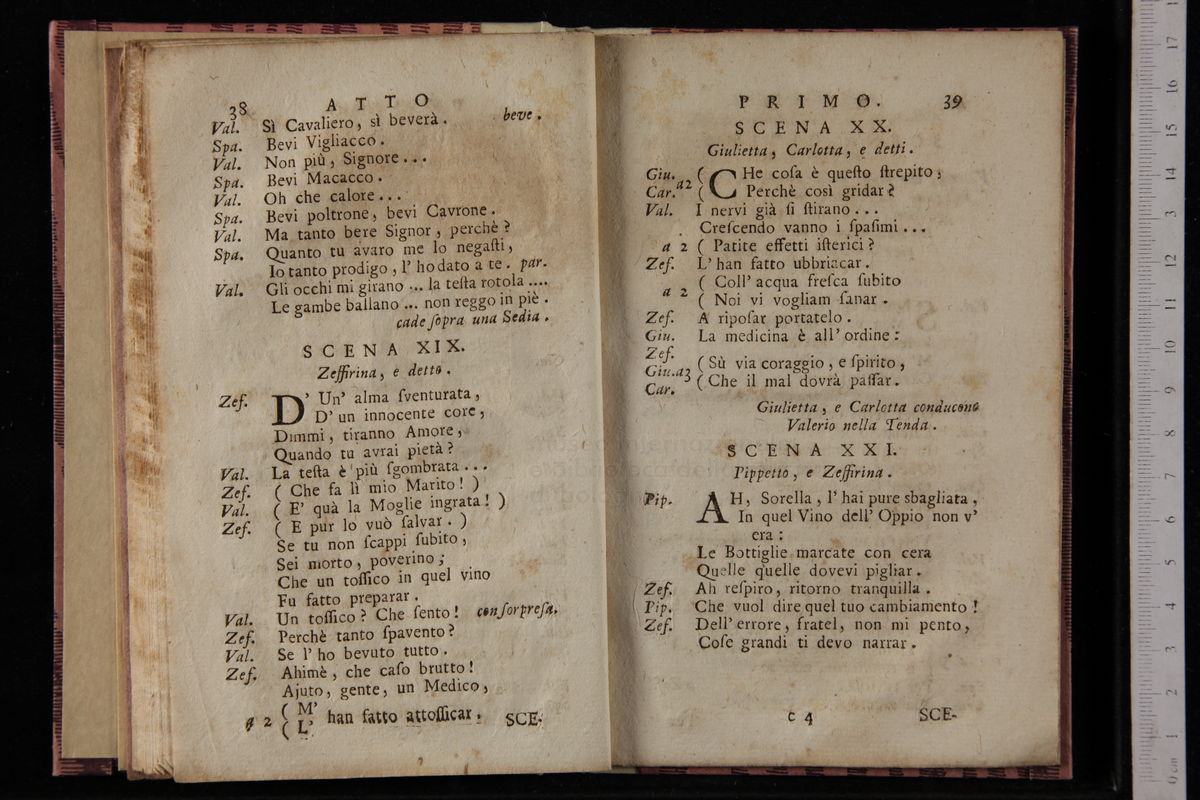 38 ATTO
Val. Sì Cavaliero, sì beverà. beve.
Spa. Bevi Vigliacco.
Val. Non più, Signore...
Spa. Bevi Macacco.
Val. Oh che calore...
Spa. Bevi poltrone, bevi Cavrone.
Val. Ma tanto bere Signor, perchè?
Spa. Quanto tu avaro me lo negaſti,
Io tanto prodigo, l' ho dato a te. par.
Val. Gli occhi mi girano ... la teſta rotola ....
Le gambe ballano ... non reggo in piè.
cade ſopra una Sedia.
SCENA XIX.
Zeffirina, e detto.
Zef. D' Un' alma ſventurata,
D' un innocente core,
Dimmi, tiranno Amore,
Quando tu avrai pietà?
Val. La teſta è più ſgombrata...
Zef. ( Che fa lì mio Marito! )
Val. ( E' quà la Moglie ingrata! )
Zef. ( E pur lo vuò ſalvar. )
Se tu non ſcappi ſubito,
Sei morto, poverino;
Che un toſſico in quel vino
Fu fatto preparar.
Val. Un toſſico? Che ſento! con ſorpreſa.
Zef. Perchè tanto ſpavento?
Val. Se l' ho bevuto tutto.
Zef. Ahimè, che caſo brutto!
Ajuto, gente, un Medico,
a 2 ( M'
( L' han fatto attoſſicar. SCE-
PRIMO. 39
SCENA XX.
Giulietta, Carlotta, e detti.
Giu. ( CHe coſa è queſto ſtrepito,
Car. a2 ( Perchè così gridar?
Val. I nervi già ſi ſtirano...
Creſcendo vanno i ſpaſimi...
a 2 ( Patite effetti iſterici?
Zef. L' han fatto ubbriacar.
a 2 ( Coll' acqua freſca ſubito
( Noi vi vogliam ſanar.
Zef. A ripoſar portatelo.
Giu. La medicina è all' ordine:
Zef.
Giu. a3 ( Sù via coraggio, e ſpirito,
Car. ( Che il mal dovrà paſſar.
Giulietta, e Carlotta conducono
Valerio nella Tenda.
SCENA XXI.
Pippetto, e Zeffirina.
Pip. AH, Sorella, l' hai pure sbagliata,
In quel Vino dell' Oppio non v'
era:
Le Bottiglie marcate con cera
Quelle quelle dovevi pigliar.
Zef. Ah reſpiro, ritorno tranquilla.
Pip. Che vuol dire quel tuo cambiamento!
Zef. Dell' errore, fratel, non mi pento,
Coſe grandi ti devo narrar.
C 4 SCE-